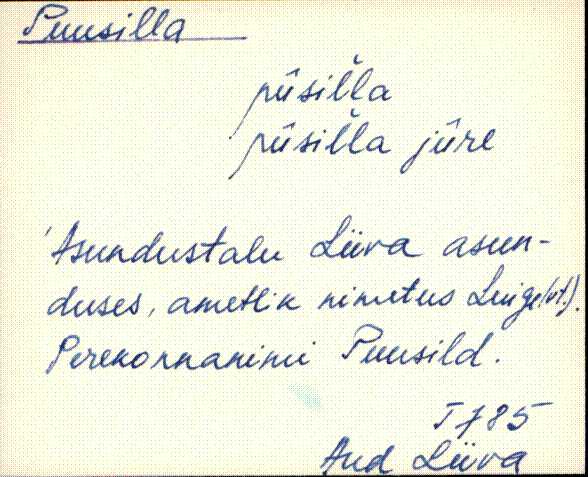 Puusilla
pūsiľľa
pūsiľľa jūre
'Asundustalu Liiva asun-
duses, ametlik nimetus Luige (vt.).
Perekonnanimi Puusild.
T 785
And Liiva